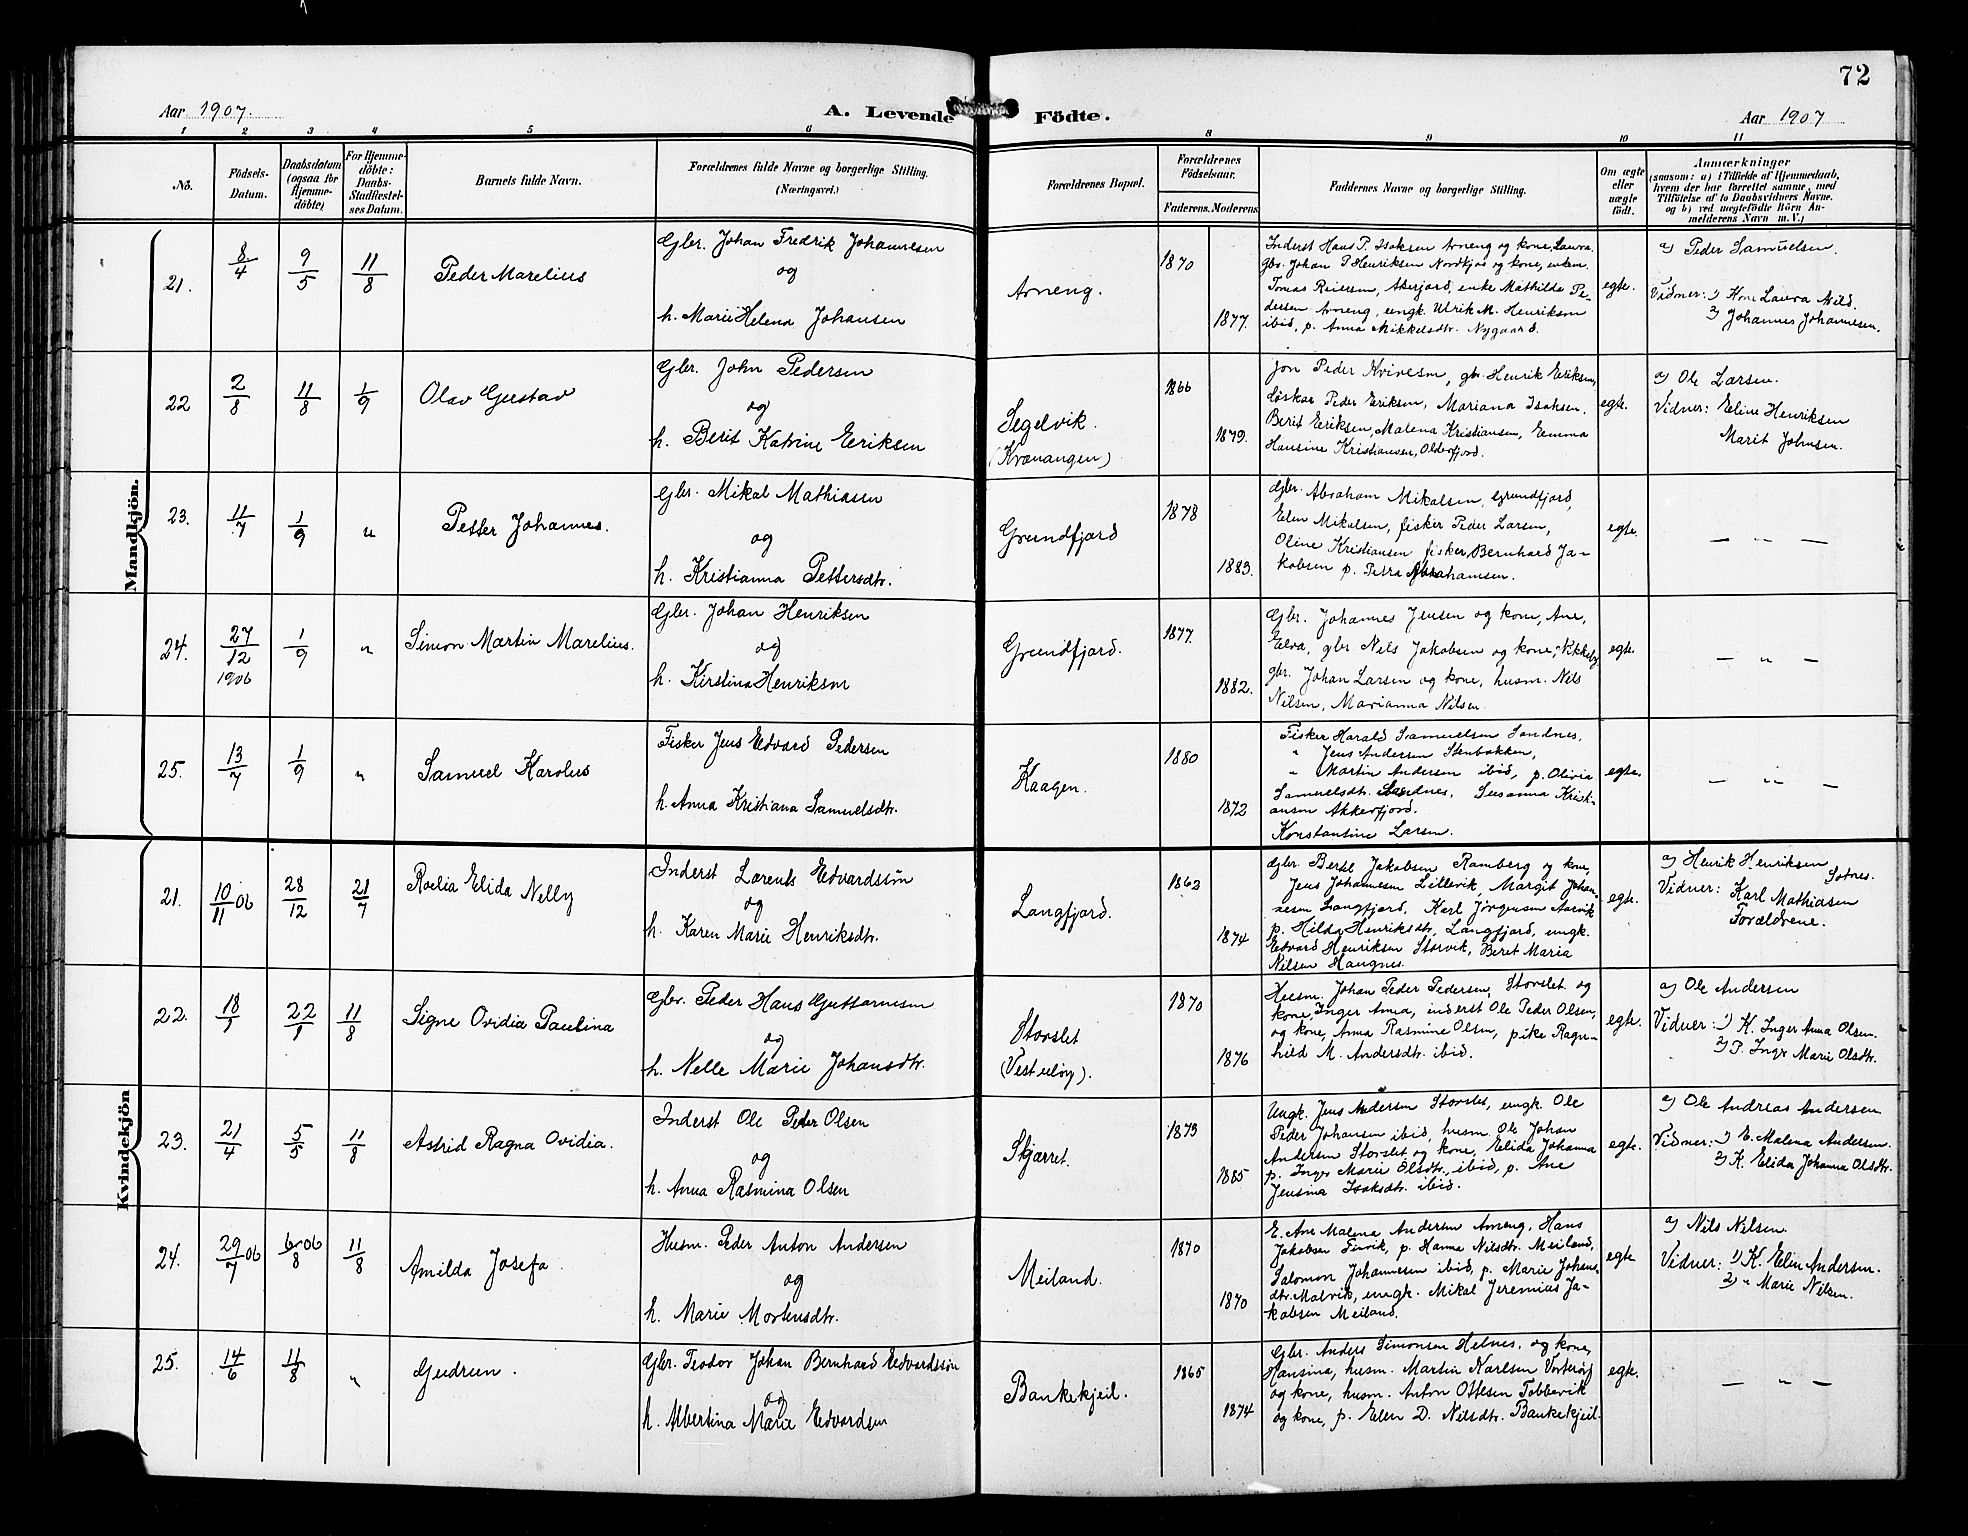 72
Aar 1907.
A. Levende Födte.
Aar 1907
1 2 3 4 5 6 8 9 10 11
No.
Födsels-Datum.
Daabsdatum (ogsaa for Hjemme-döbte).
For Hjemme-döbte: Daabs-Stadfæstel-ses Datum.
Barnets fulde Navn.
Forældrenes fulde Navne og borgerlige Stilling. (Næringsvei.)
Forældrenes Bopæl.
Forældrenes Födselsaar.
Faderens. Moderens.
Faddernes Navne og borgerlige Stilling.
Om ægte eller uægte födt.
Anmærkninger
(saasom: a) i Tilfælde af Hjemmedaab, hvem der har forrettet samme, med Tilföielse af to Daabsvidners Navne. og b) ved uægtefödte Börn An-melderens Navn m. V.)
Mandkjön.
21. 8/4 9/5 11/8 Peder Marelius
Gbr. Johan Fredrik Johannesen
og
h. Marie Helena Johansen
Arneng.
1870
1877.
Inderst Hans P. Isaksen Arneng og kone, Laura.
gbr. Johan P. Henriksen Nordkjos og kone, enkem.
Tomas Reiersen, Akerjord, enke Mathilda Pe-
dersen Arneng, ungk. Ulrik M. Henriksen
ibid, p. Anna Mikkelsdtr. Nygaard.
egte.
a) Peder Samuelsen.
Vidner: 1) Kone Laura Nild.
2) Johannes Johannesen.
22 2/8 11/8 1/9 Olav Gustav
Gbr. John Pedersen
og
h. Berit Katrine Eriksen
Segelvik.
(Kvænangen)
1866
1879.
Jon Peder Kvivesen, gbr. Henrik Eriksen,
løskar Peder Eriksen, Mariana Isaksen.
Berit Eriksen, Malena Kristiansen, Emma
Hansine Kristiansen, Olderfjord.
egte.
a) Ole Larsen.
Vidner: Eline Henriksen
Marit Johnsen.
23. 11/7 1/9 " Petter Johannes.
Gbr. Mikal Mathiasen
og
h. Kristianna Pettersdtr.
Grundfjord
1878
1883.
Gbr. Abraham Mikalsen, Grundfjord,
Elen Mikalsen, fisker Peder Larsen,
Oline Kristiansen fisker, Bernhard Ja-
kobsen p. Petra Abrahamsen.
egte.
— " —
24. 27/12 1906 1/9 " Simon Martin Marelius.
Gbr. Johan Henriksen
og
h. Kirstina Henriksen
Grundfjord.
1877.
1882.
Gbr. Johannes Jensen og kone, Ane,
Elva, gbr. Nils Jakobsen og kone, Vikkeby
gbr. Johan Larsen og kone, husm. Nils
Nilsen, Marianna Nilsen.
egte.
— " —
25. 13/7 1/9 " Samuel Karolus
Fisker Jens Edvard Pedersen
h. Anna Kristiana Samuelsdtr.
Kaagen.
1880
1872
Fisker Harald Samuelsen Sandnes,
" Jens Andersen Stenbakken,
" Martin Andersen ibid, p. Olivia
Samuelsdtr. Sandnes, Susanna Kristi-
ansen Akkerfjord.
Konstantine Larsen.
egte.
— " —
Kvindekjön
21. 10/11 06 28/12 21/7 Roelia Elida Nelly
Inderst Lorents Edvardssön
og
h. Karen Marie Henriksdtr.
Langfjord.
1862
1874
Gbr. Bertel Jakobsen Ramberg og kone,
Jens Johannesen Lillevik, Margit Johan-
nesen Langfjord, Karl Jørgensen Aarvik
p. Hilda Henriksdtr, Langfjord, ungk.
Edvard Henriksen Storvik, Beret Maria
Nilsen Haugnes.
egte.
a) Henrik Henriksen
Sotnes.
Vidner: Karl Mathiasen
Forældrene.
22. 18/1 22/1 11/8 Signe Ovidia Paulina
Gbr. Peder Hans Guttormsen
og
h. Nelle Marie Johansdtr.
Storslet
(Vestuløy).
1870
1876
Husm. Johan Peder Pedersen, Storslet og
kone, Inger Anna, inderst Ole Peder Olsen,
og kone, Anna Rasmine Olsen, pike Ragn-
hild M. Andersdtr. ibid.
egte.
a) Ole Andersen
Vidner: 1) K. Inger Anna Olsen.
2) P. Ingr Marie Olsdtr.
23. 21/4 5/5 11/8 Astrid Ragna Ovidia.
Inderst Ole Peder Olsen
og
h. Anna Rasmina Olsen
Skjærret.
1873
1885
Ungk. Jens Andersen Storslet, ungk. Ole
Peder Johansen ibid, husm. Ole Johan
Andersen Storslet og kone, Elida Johanna
p. Inger Marie Olsdtr. ibid, p. Ane
Jensina Isaksdtr. ibid.
egte.
a) Ole Andreas Andersen
Vidner: 1) E. Malena Andersen.
2) K. Elida Johanna Olsdtr.
24. 29/7 06 6/8 06 11/8 Amilda Josefa.
Husm. Peder Anton Andersen
og
h. Marie Mortensdtr.
Meiland.
1870
1870
E. Ane Malena Andersen Arneng, Hans
Jakobsen Finvik, p. Hanna Nilsdtr. Meiland,
Salomon Johannesen ibid, p. Marie Johans-
dtr. Malvik, ungk. Mikal Jeremias Ja-
kobsen Meiland.
egte
a) Nils Nilsen.
Vidner: 1) K. Elen Andersen.
2) " Marie Nilsen.
25. 14/6 11/8 " Gudrun.
Gbr. Teodor Johan Bernhard Edvardssön
og
h. Albertina Marie Edvardsen
Bankekjeil.
1865
1874
Gbr. Anders Simonsen Helnes, og kone,
Hansina, husm. Martin Karlsen Vorterøy
og kone, husm. Anton Ottesen Tobbevik
og kone, p. Elen D. Nilsdtr. Bankekjeil.
egte.
— " —